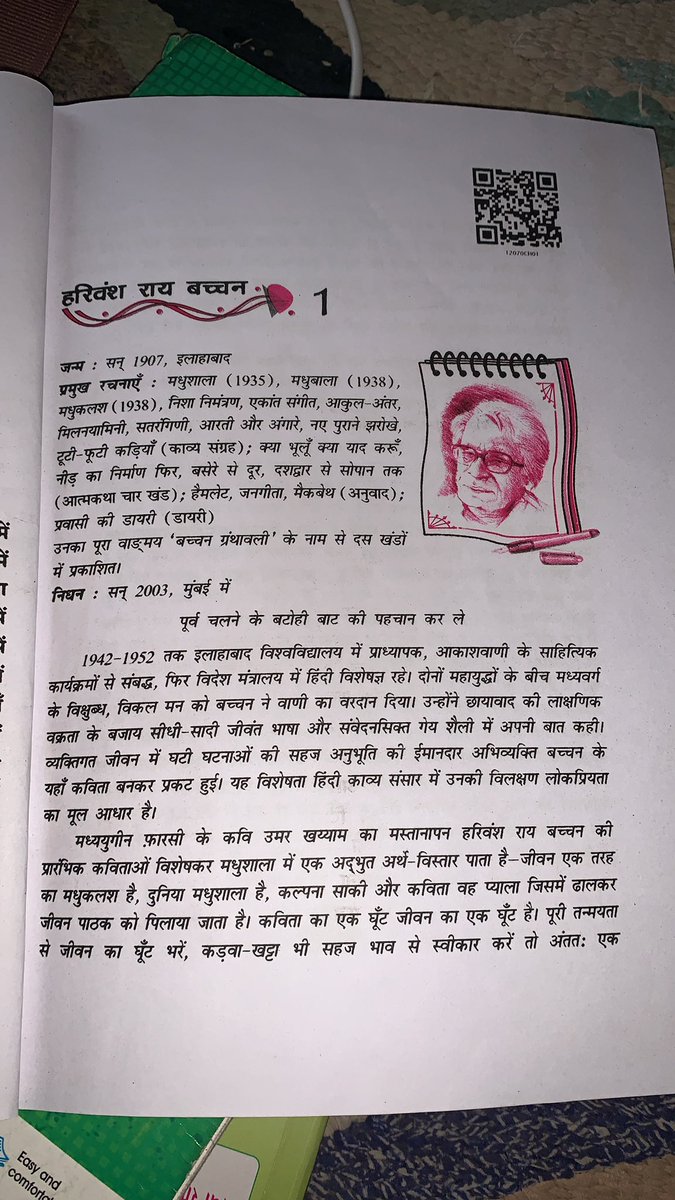 हरिवंश राय बच्चन 1
जन्म : सन् 1907, इलाहाबाद
प्रमुख रचनाएँ : मधुशाला (1935), मधुबाला (1938),
मधुकलश (1938), निशा निमंत्रण, एकांत संगीत, आकुल-अंतर,
मिलनयामिनी, सतरंगिणी, आरती और अंगारे, नए पुराने झरोखे,
टूटी-फूटी कड़ियाँ (काव्य संग्रह); क्या भूलूँ क्या याद करूँ,
नीड़ का निर्माण फिर, बसेरे से दूर, दशद्वार से सोपान तक
(आत्मकथा चार खंड); हैमलेट, जनगीता, मैकबेथ (अनुवाद);
प्रवासी की डायरी (डायरी)
उनका पूरा वाङ्मय ‘बच्चन ग्रंथावली’ के नाम से दस खंडों
में प्रकाशित।
निधन : सन् 2003, मुंबई में
पूर्व चलने के बटोही बाट की पहचान कर ले
1942-1952 तक इलाहाबाद विश्वविद्यालय में प्राध्यापक, आकाशवाणी के साहित्यिक
कार्यक्रमों से संबद्ध, फिर विदेश मंत्रालय में हिंदी विशेषज्ञ रहे। दोनों महायुद्धों के बीच मध्यवर्ग
के विक्षुब्ध, विकल मन को बच्चन ने वाणी का वरदान दिया। उन्होंने छायावाद की लाक्षणिक
वक्रता के बजाय सीधी-सादी जीवंत भाषा और संवेदनसिक्त गेय शैली में अपनी बात कही।
व्यक्तिगत जीवन में घटी घटनाओं की सहज अनुभूति की ईमानदार अभिव्यक्ति बच्चन के
यहाँ कविता बनकर प्रकट हुई। यह विशेषता हिंदी काव्य संसार में उनकी विलक्षण लोकप्रियता
का मूल आधार है।
मध्ययुगीन फ़ारसी के कवि उमर खय्याम का मस्तानापन हरिवंश राय बच्चन की
प्रारंभिक कविताओं विशेषकर मधुशाला में एक अद्भुत अर्थ-विस्तार पाता है—जीवन एक तरह
का मधुकलश है, दुनिया मधुशाला है, कल्पना साकी और कविता वह प्याला जिसमें ढालकर
जीवन पाठक को पिलाया जाता है। कविता का एक घूँट जीवन का एक घूँट है। पूरी तन्मयता
से जीवन का घूँट भरें, कड़वा-खट्टा भी सहज भाव से स्वीकार करें तो अंततः एक
Easy and